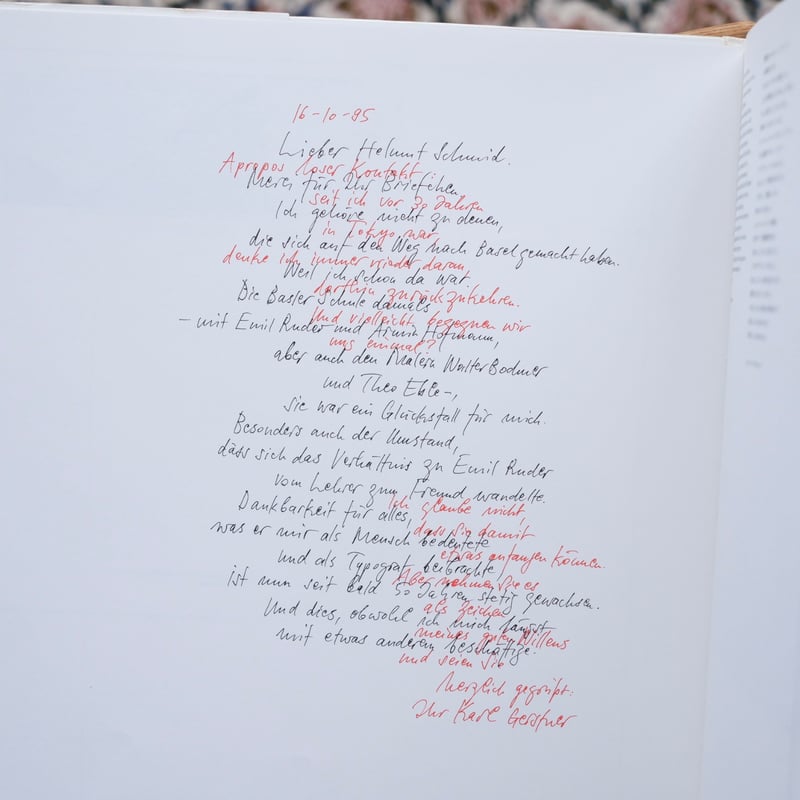 16-10-95
Lieber Helmut Schmid.
Apropos loser Kontakt:
Merci für Ihr Briefchen.
seit ich vor 30 Jahren
Ich gehöre nicht zu denen,
in Tokyo war,
die sich auf den Weg nach Basel gemacht haben.
denke ich immer wieder daran,
Weil ich schon da war.
dorthin zurückzukehren.
Die Basler Schule damals
Und vielleicht begegnen wir
– mit Emil Ruder und Armin Hofmann,
uns einmal?
aber auch den Malern Walter Bodmer
und Theo Eble –,
sie war ein Glücksfall für mich.
Besonders auch der Umstand,
dass sich das Verhältnis zu Emil Ruder
vom Lehrer zum Freund wandelte.
Ich glaube nicht,
Dankbarkeit für alles,
dass Sie damit
was er mir als Mensch bedeutete
etwas anfangen können.
und als Typograf beibrachte,
Aber nehmen Sie es
ist nun seit bald 50 Jahren stetig gewachsen.
als Zeichen
Und dies, obwohl ich mich längst
meines guten Willens
mit etwas anderem beschäftige.
und seien Sie
herzlich gegrüsst.
Ihr Karl Gerstner